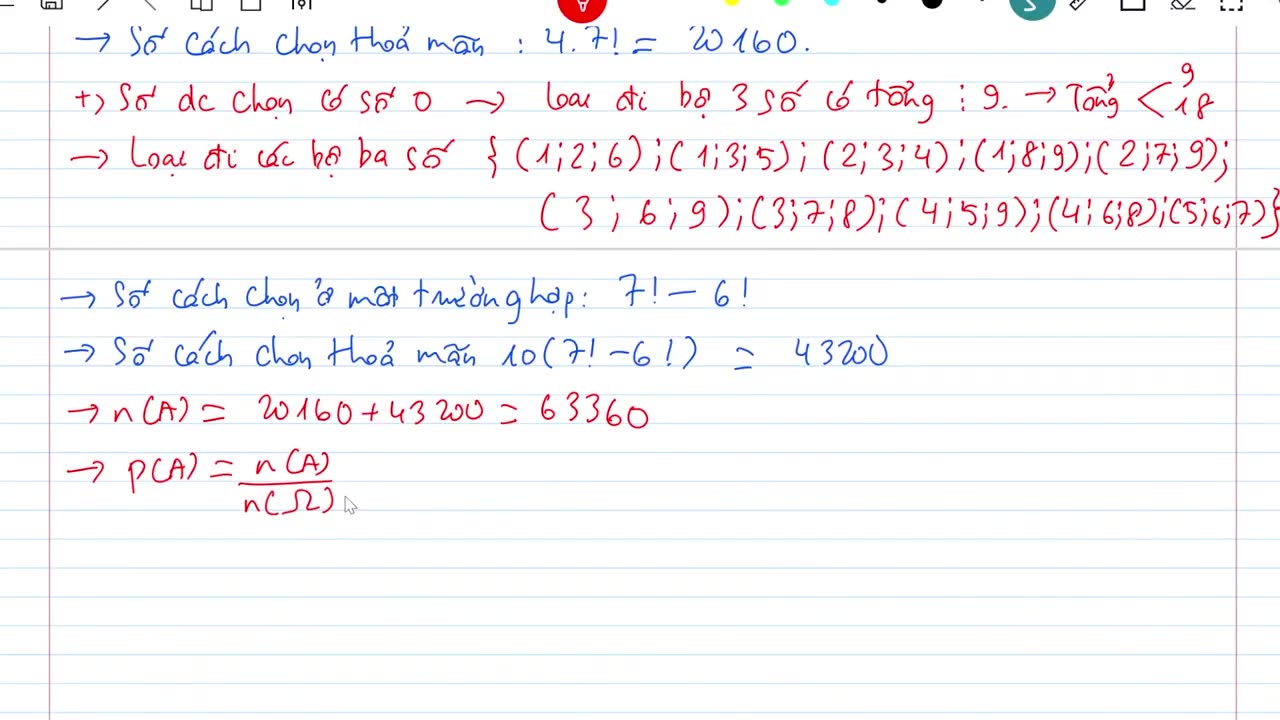 → Số cách chọn thoả mãn : 4.7! = 20160.
+) Số dc chọn có số 0 → loại đi bộ 3 số có tổng ⋮ 9. → Tổng < 9 18
→ Loại đi các bộ ba số { (1;2;6);(1;3;5);(2;3;4);(1;8;9);(2;7;9);
(3;6;9);(3;7;8);(4;5;9);(4;6;8);(5;6;7)}
→ Số cách chọn ở một trường hợp: 7! – 6!
→ Số cách chọn thoả mãn 10(7! – 6!) = 43200
→ n(A) = 20160 + 43200 = 63360
→ P(A) = n(A)
n(Ω)